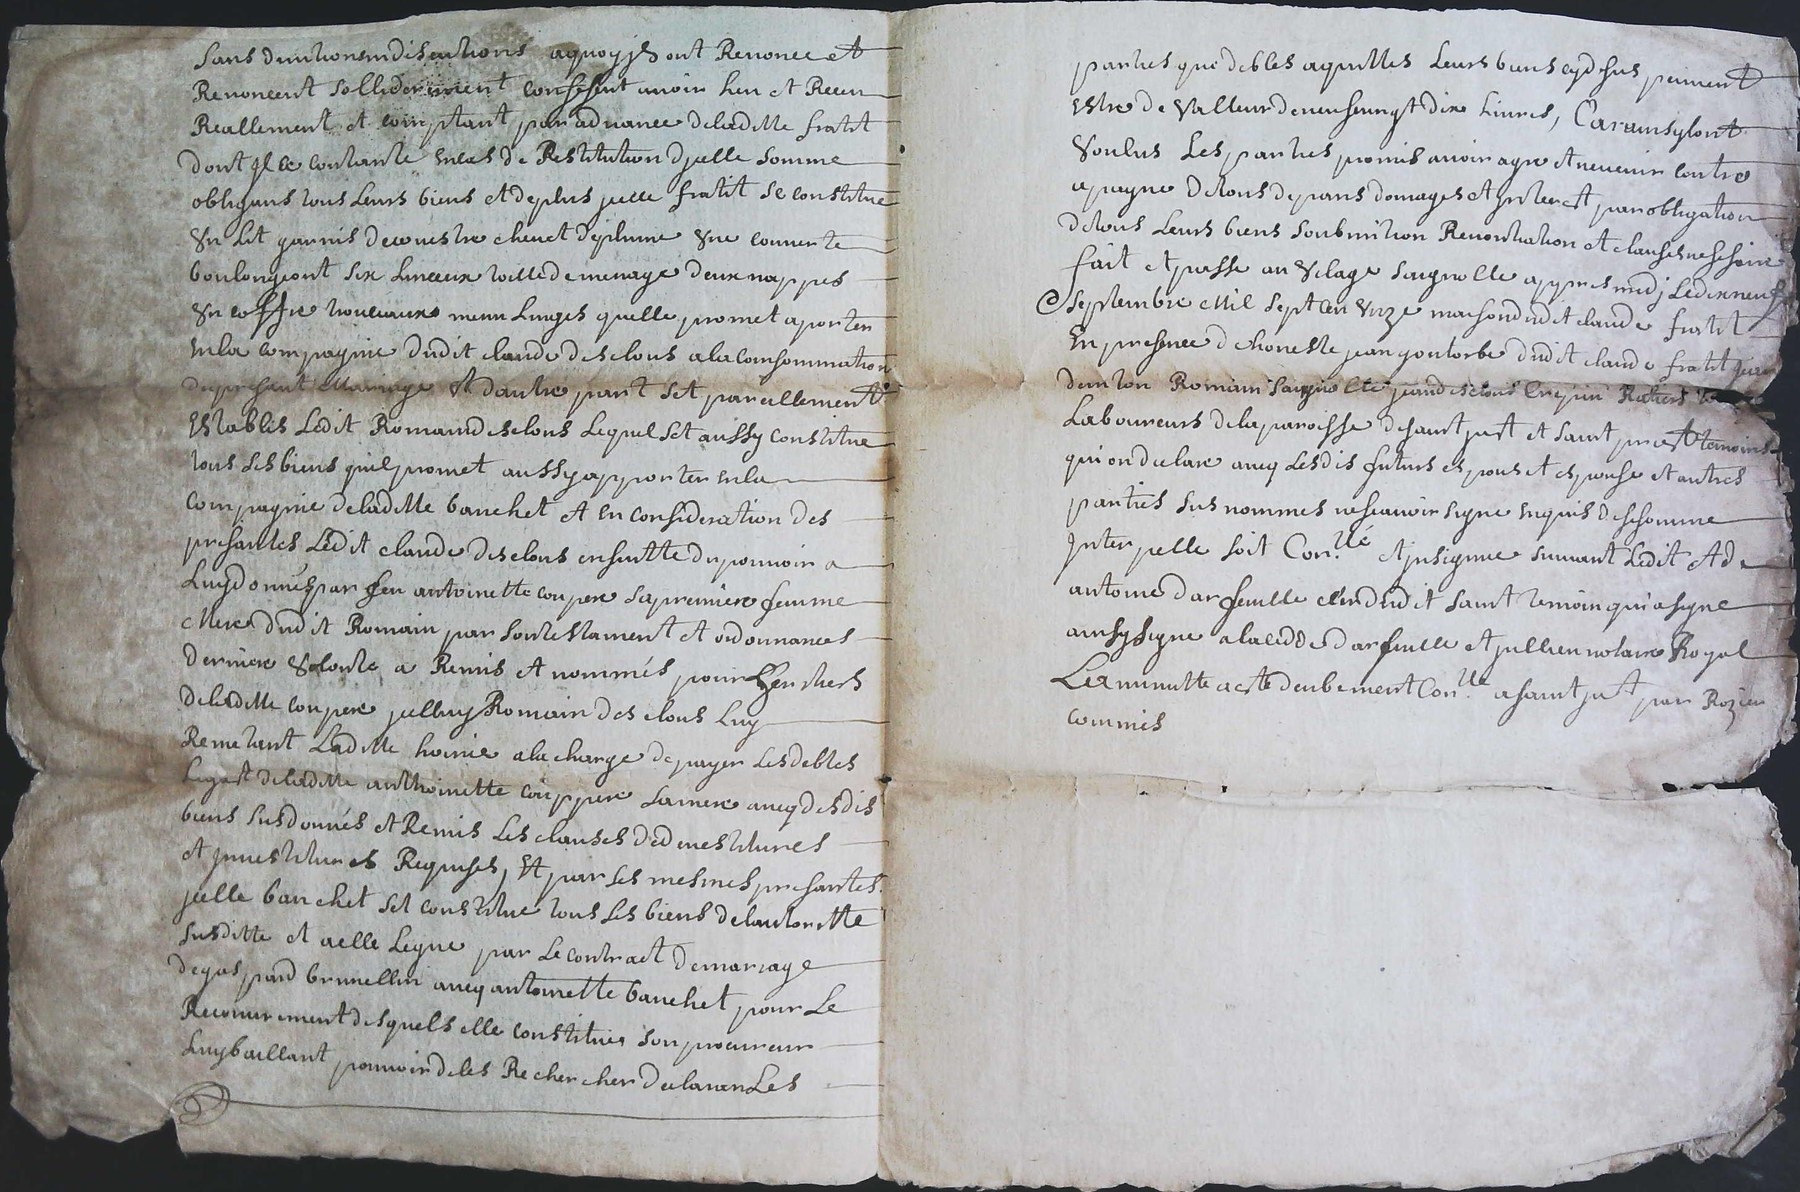 Sans diuitions ny disentions aquoy jls ont Renoncé et
Renoncent sollidairement confessent auoir heu et Receu
Reallement et comptant par aduance deladitte fratit
dont Jl ce contante encas de Restitution djcelle somme
obligeans tous Leurs biens et deplus jcelle fratit se constitue
Vn Lit garnis de couestre cheuet deplume Vne couuerte
boulongeont six Linceux toille de menage deux nappes
Vn coffre nouueaux menu Linges quelle promet aporter
Enla compagnie dudit claude desclous ala consommation
du present Mariage Et dautre part set pareillement
Establis Ledit Romain desclous Lequel set aussy constitue
tous ses biens quil promet aussy apporter enla
compagnie deladitte banchet et En consideration des
presantes Ledit claude desclous ensuitte du pouuoir a
Luy donnés par feu antoinette couperé sa premiere femme
Mere dudit Romain par son testament et ordonnances
derniere Volonte a Remis et nommés pour heritiers
deladitte couperé jcelluy Romain desclous Luy
Remetant Laditte hoirie ala charge de payer Les debtes
Legast deladitte anthoinette couppere samere aueq desdis
biens susdonnés et Remis Les clauses de deuestitures
et jnuestitures Requises, Et par Les mesmes presantes
jcelle banchet set constitue tous ses biens de lautoritte
susditte et aelle Legue par Le contract de mariage
de gaspard brunellin aueq antoinette banchet pour Le
Recouurement desquels elle constitue son procureur
Luy baillant pouuoir de les Rechercher declarer Les
parties que debtes aquittes Leurs biens cydesus peuuent
Estre de Valleur de neuf cent dix Liures, Car ainsy lont
Voulus Les parties promis auoir agre et ne uenir contre
apeyne de tous depans domages et jnterest par obligation
de tous Leurs biens soubmition Renontiation et clauses nesesaire
fait et passe au Vilage Saignolle appres midj Le dixneuf
Septembre Mil Sept Cen Vnze maison dudit claude fratit
En presence de honeste jean gontorbe dudit claude fratit
Romain Saignolle jean desclous Crepin
Laboureurs dela paroisse de saint just et saint priest temoins
qui on declare aueq Lesdis futurs espoux et espouse et autres
parties susnommes ne scauoir signe Enquis de se somme
jnterpelle soit Con.lle et jnsignue suiuant Ledit et de
antoine darfeuille clerc dudit saint temoin qui a signe
ainsy signe a la cedde darfeuille et jullien notaire Royal
La minutte acste deubement Con.lle a saint just par Rozier
commis